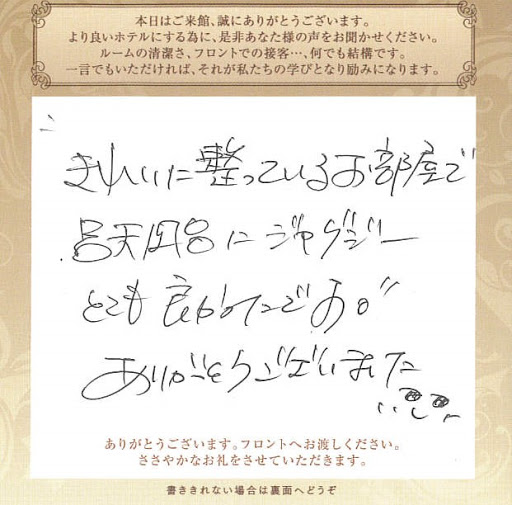 本日はご来館、誠にありがとうございます。
より良いホテルにする為に、是非あなた様の声をお聞かせください。
ルームの清潔さ、フロントでの接客…、何でも結構です。
一言でもいただければ、それが私たちの学びとなり励みになります。
きれいに整っているお部屋で
呂天風呂にジャグジー
とても良かったです。
ありがとうございました
ありがとうございます。フロントへお渡しください。
ささやかなお礼をさせていただきます。
書ききれない場合は裏面へどうぞ